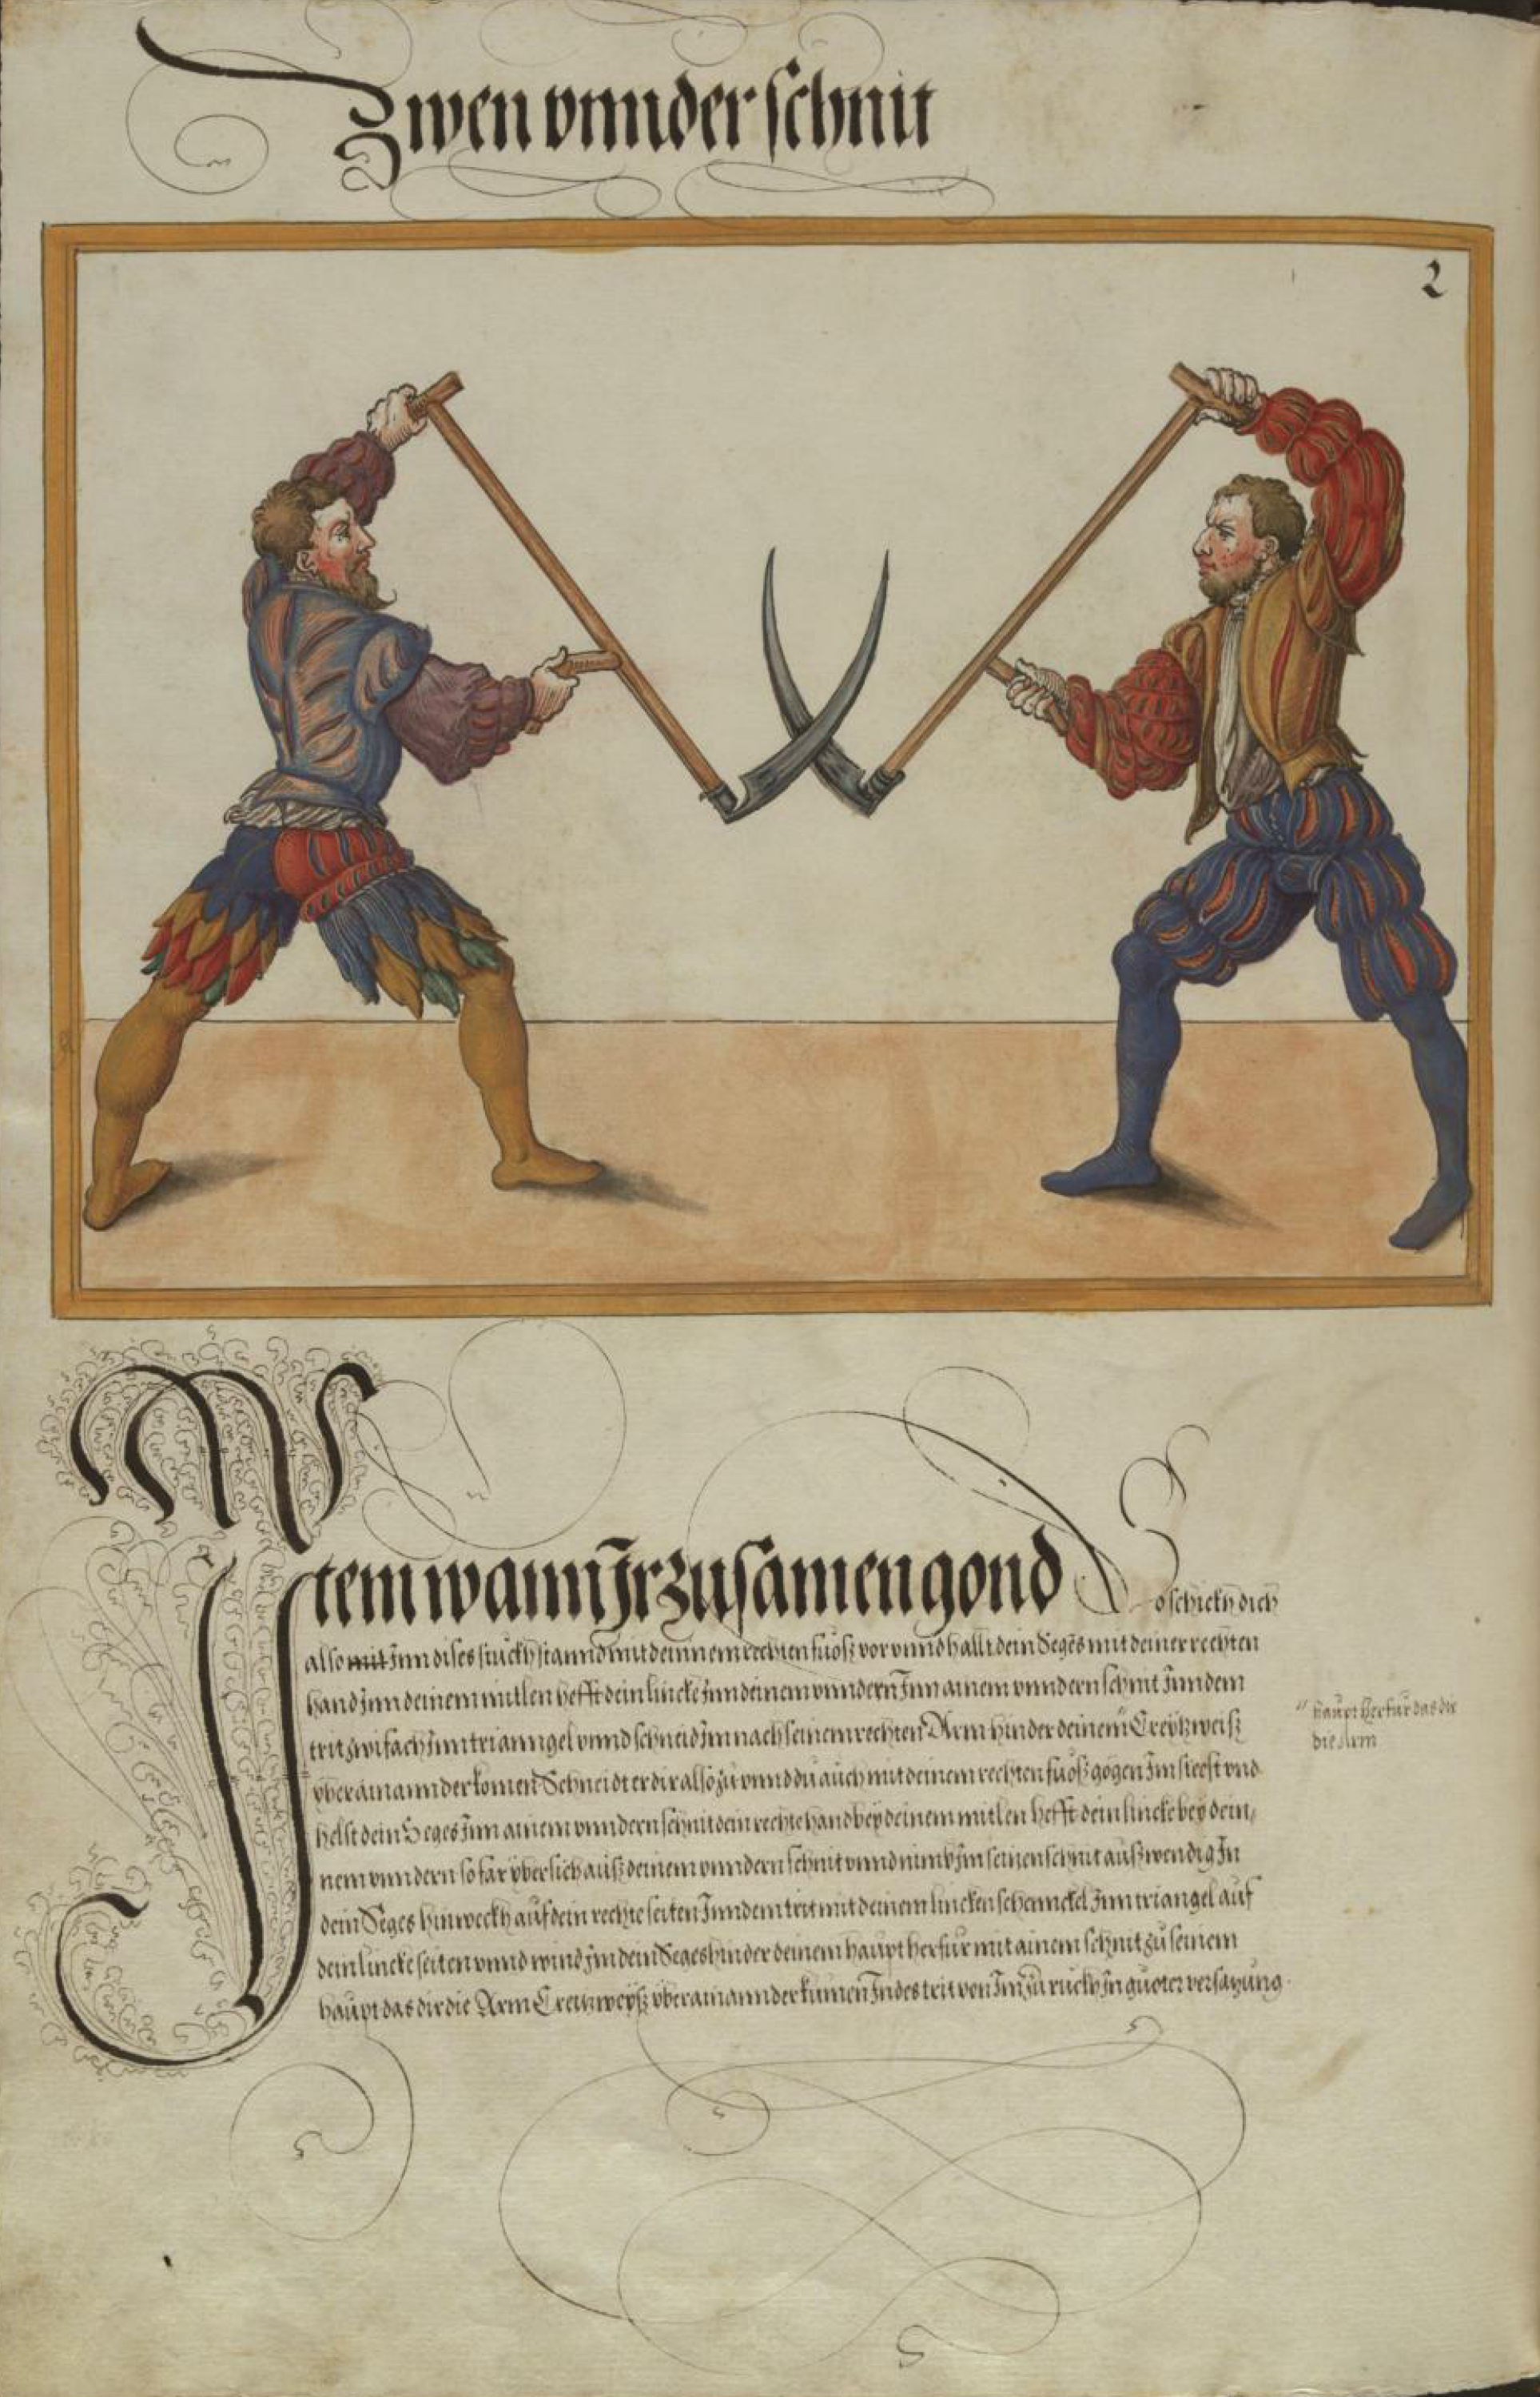 Zwen vnnder schnit
2
Item wann Ir zusamen gond So schickh dich
also mit Inn dises stuckh stannd mit deinnem rechten fuosz vor vnnd hallt dein Seges mit deiner rechten
hand Inn deinem mitlen hefft dein lincke Inn deinem vnndern Inn ainem vnndern schnit Inn dem
trit zwifach Inn trianngel vnnd schneid Im nach seinem rechten Arm hinder deinem Creützweisz
" haupt herfür das dir
die Arm
vber ainannder komen Schneidt er dir also zu vnnd du auch mit deinem rechten fuosz gögen Im steest vnd
helst dein Seges Inn ainem vnndern schnit dein rechte hand bey deinem mitlen hefft dein lincke bey dein/
nem vnndern so far vber sich ausz deinem vnndern schnit vnnd nimb Im seinen schnit auszwendig In
dein Seges hinweckh auf dein rechte seiten Inn dem trit mit deinem lincken schennckel Inn triangel auf
dein lincke seiten vnnd wind Im dein Seges hinder deinem haupt herfur mit ainem schnit zu seinem
haupt das dir die Arm Creutzweysz vber ainannder kumen Indes trit von Im zu ruckh In guoter versatzung.